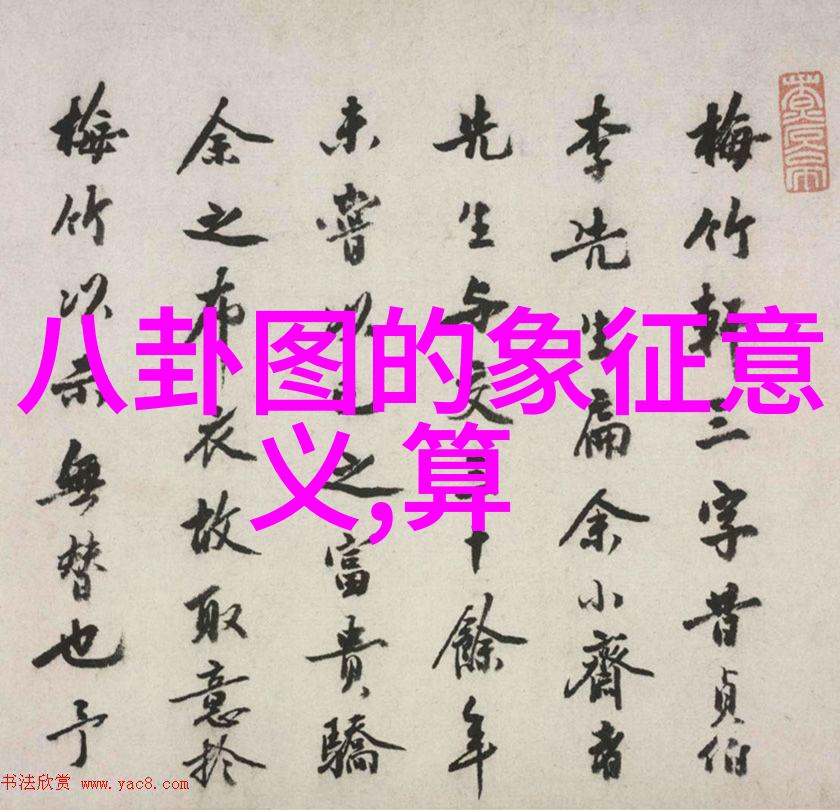 八卦图的象征意
义,算
梅竹軒三字昔貞伯
李先生扁余小齋者
先生与交三十餘年
未嘗以己之富貴驕
余之布衣故取意於
梅竹以示無替也予
书法欣赏 www.yac8.com